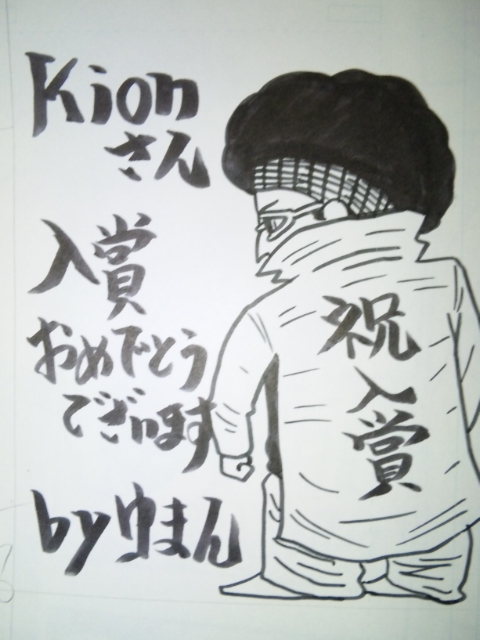 Kion
さん
入賞
おめでとう
ございます
byゆまん
祝入賞